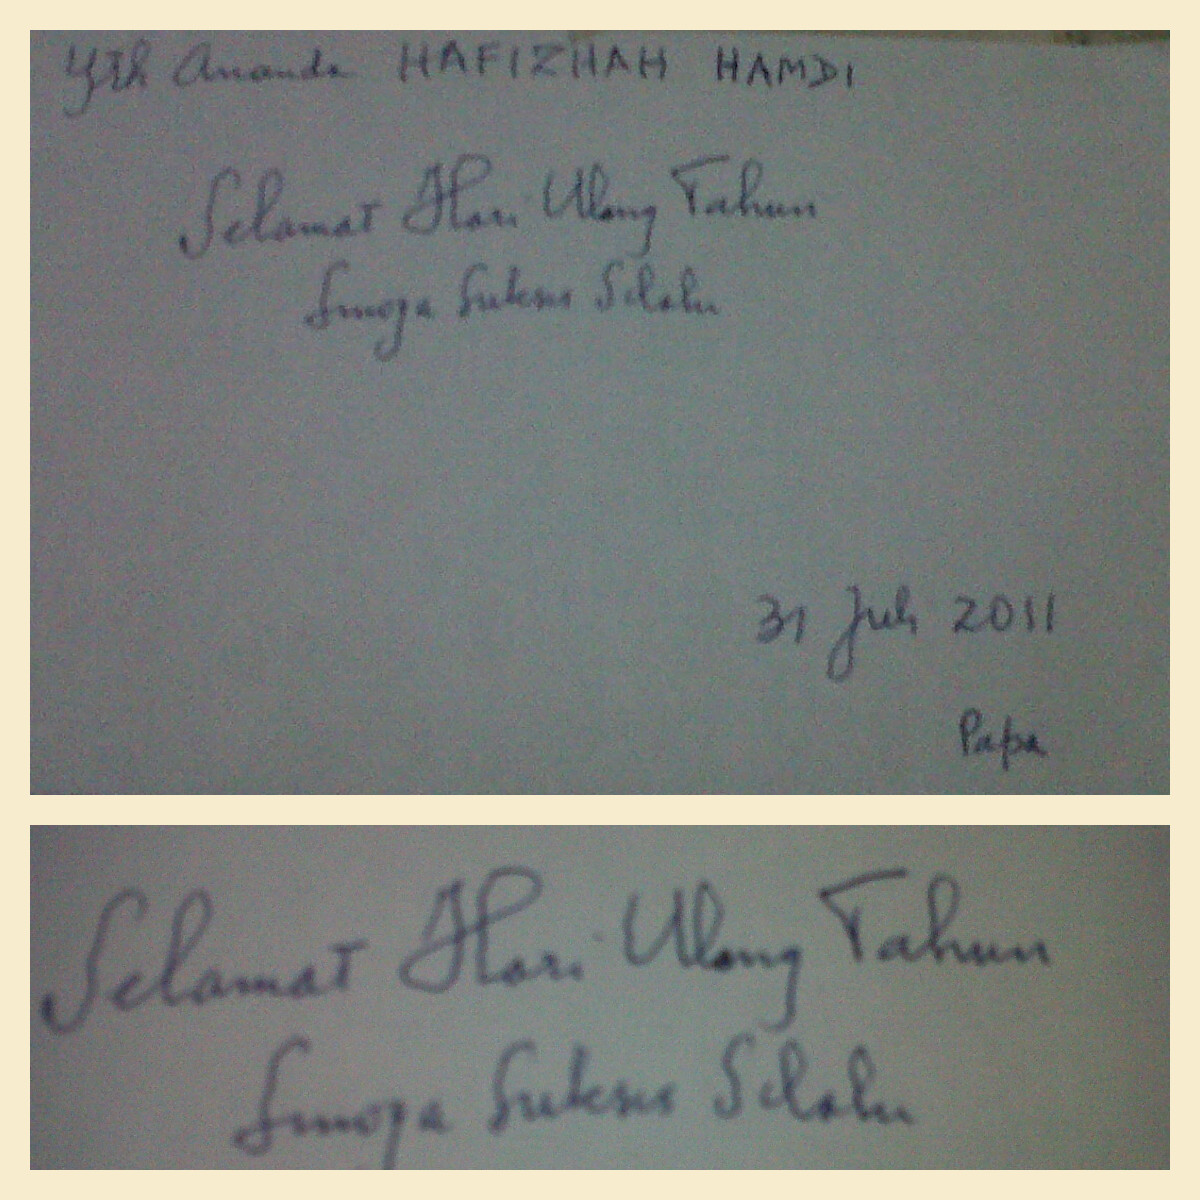 Yth Ananda HAFIZHAH HAMDI
Selamat Hari Ulang Tahun
Semoga Sukses Selalu
31 Juli 2011
Papa
Selamat Hari Ulang Tahun
Semoga Sukses Selalu